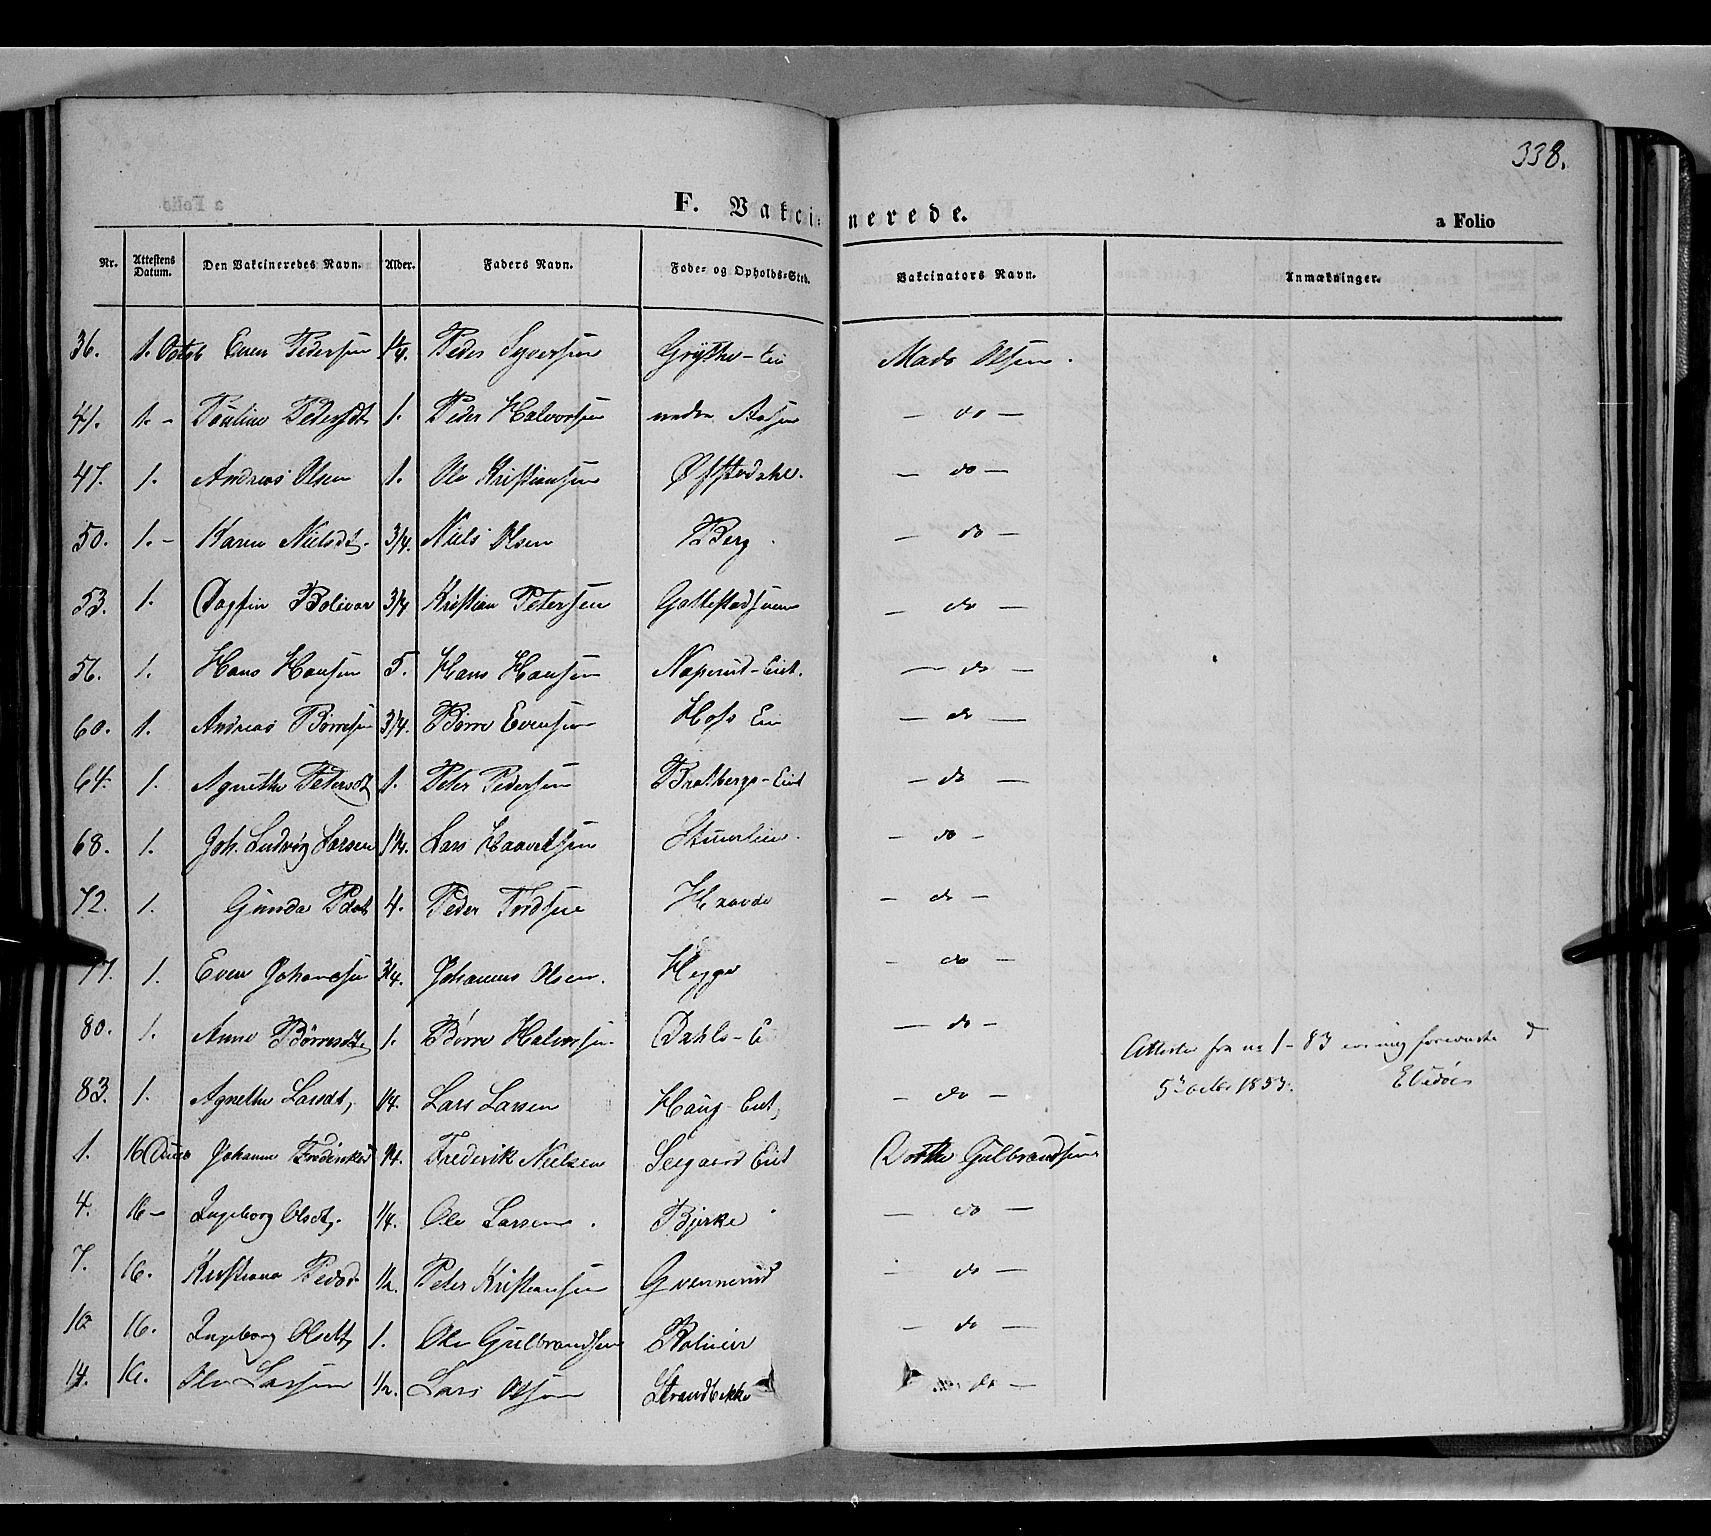 338.
F. Vakcinerede.
a Folio
Nr. Attestens Datum. Den Vakcineredes Navn. Alder. Faders Navn. Føde- og Opholds-Sted. Vakcinators Navn. Anmærkninger.
36. 1. Octob Even Pedersen 1/4. Peder Syversen Grythe-Ei Mads Olsen.
41. 1. - Pauline Pedersdt 1. Peder Halvorsen nedre Aasen - do -
47. 1. Andreas Olsen 1. Ole Kristiansen Øfstedahl. - do -
50. 1. - Karen Nielsdt. 3/4. Niels Olsen Berg. - do -
53. 1. Dagfin Bolivar 3/4 Kristian Petersen - do -
56. 1. Hans Hansen 5. Hans Hansen Naperud-Eiet. - do -
60. 1. Andreas Børresen 3/4. Børre Evensen Hofs Ei - do -
64. 1. Agnethe Petersdt 1. Peter Pedersen Bratbergs-Eiet - do -
68. 1. Joh. Ludvig Larsen 1/4. Lars - do -
72. 1. Gunda Pdt 4. Peder Tordsen - do -
77. 1. Even Johansen 3/4. Johannes Olsen. Hegge - do -
80. 1. Anne Børresdt 1. Børre Halvorsen Dahls-E - do -
Attester fra no 1-83
83. 1. Agnethe Larsdt, 1/4. Lars Larsen Haug-Eiet, - do - 5 octbr 1853.
1. 16 Johanne Frederiksd 1/4. Frederik Nielsen Seegaard Eiet Dorthe Gulbrandsen
4. 16 - Ingeborg Olsdt. 1/4. Ole Larsen. Bjerke - do -
7. 16. Kristiane Pedsd. 1/2. Peter Kristiansen - do -
10 16. Ingeborg Olsdt, 1. Ole Gulbrandsen - do -
14. 16. Ole Larsen 1/2. Lars Olsen Strandbekke - do -